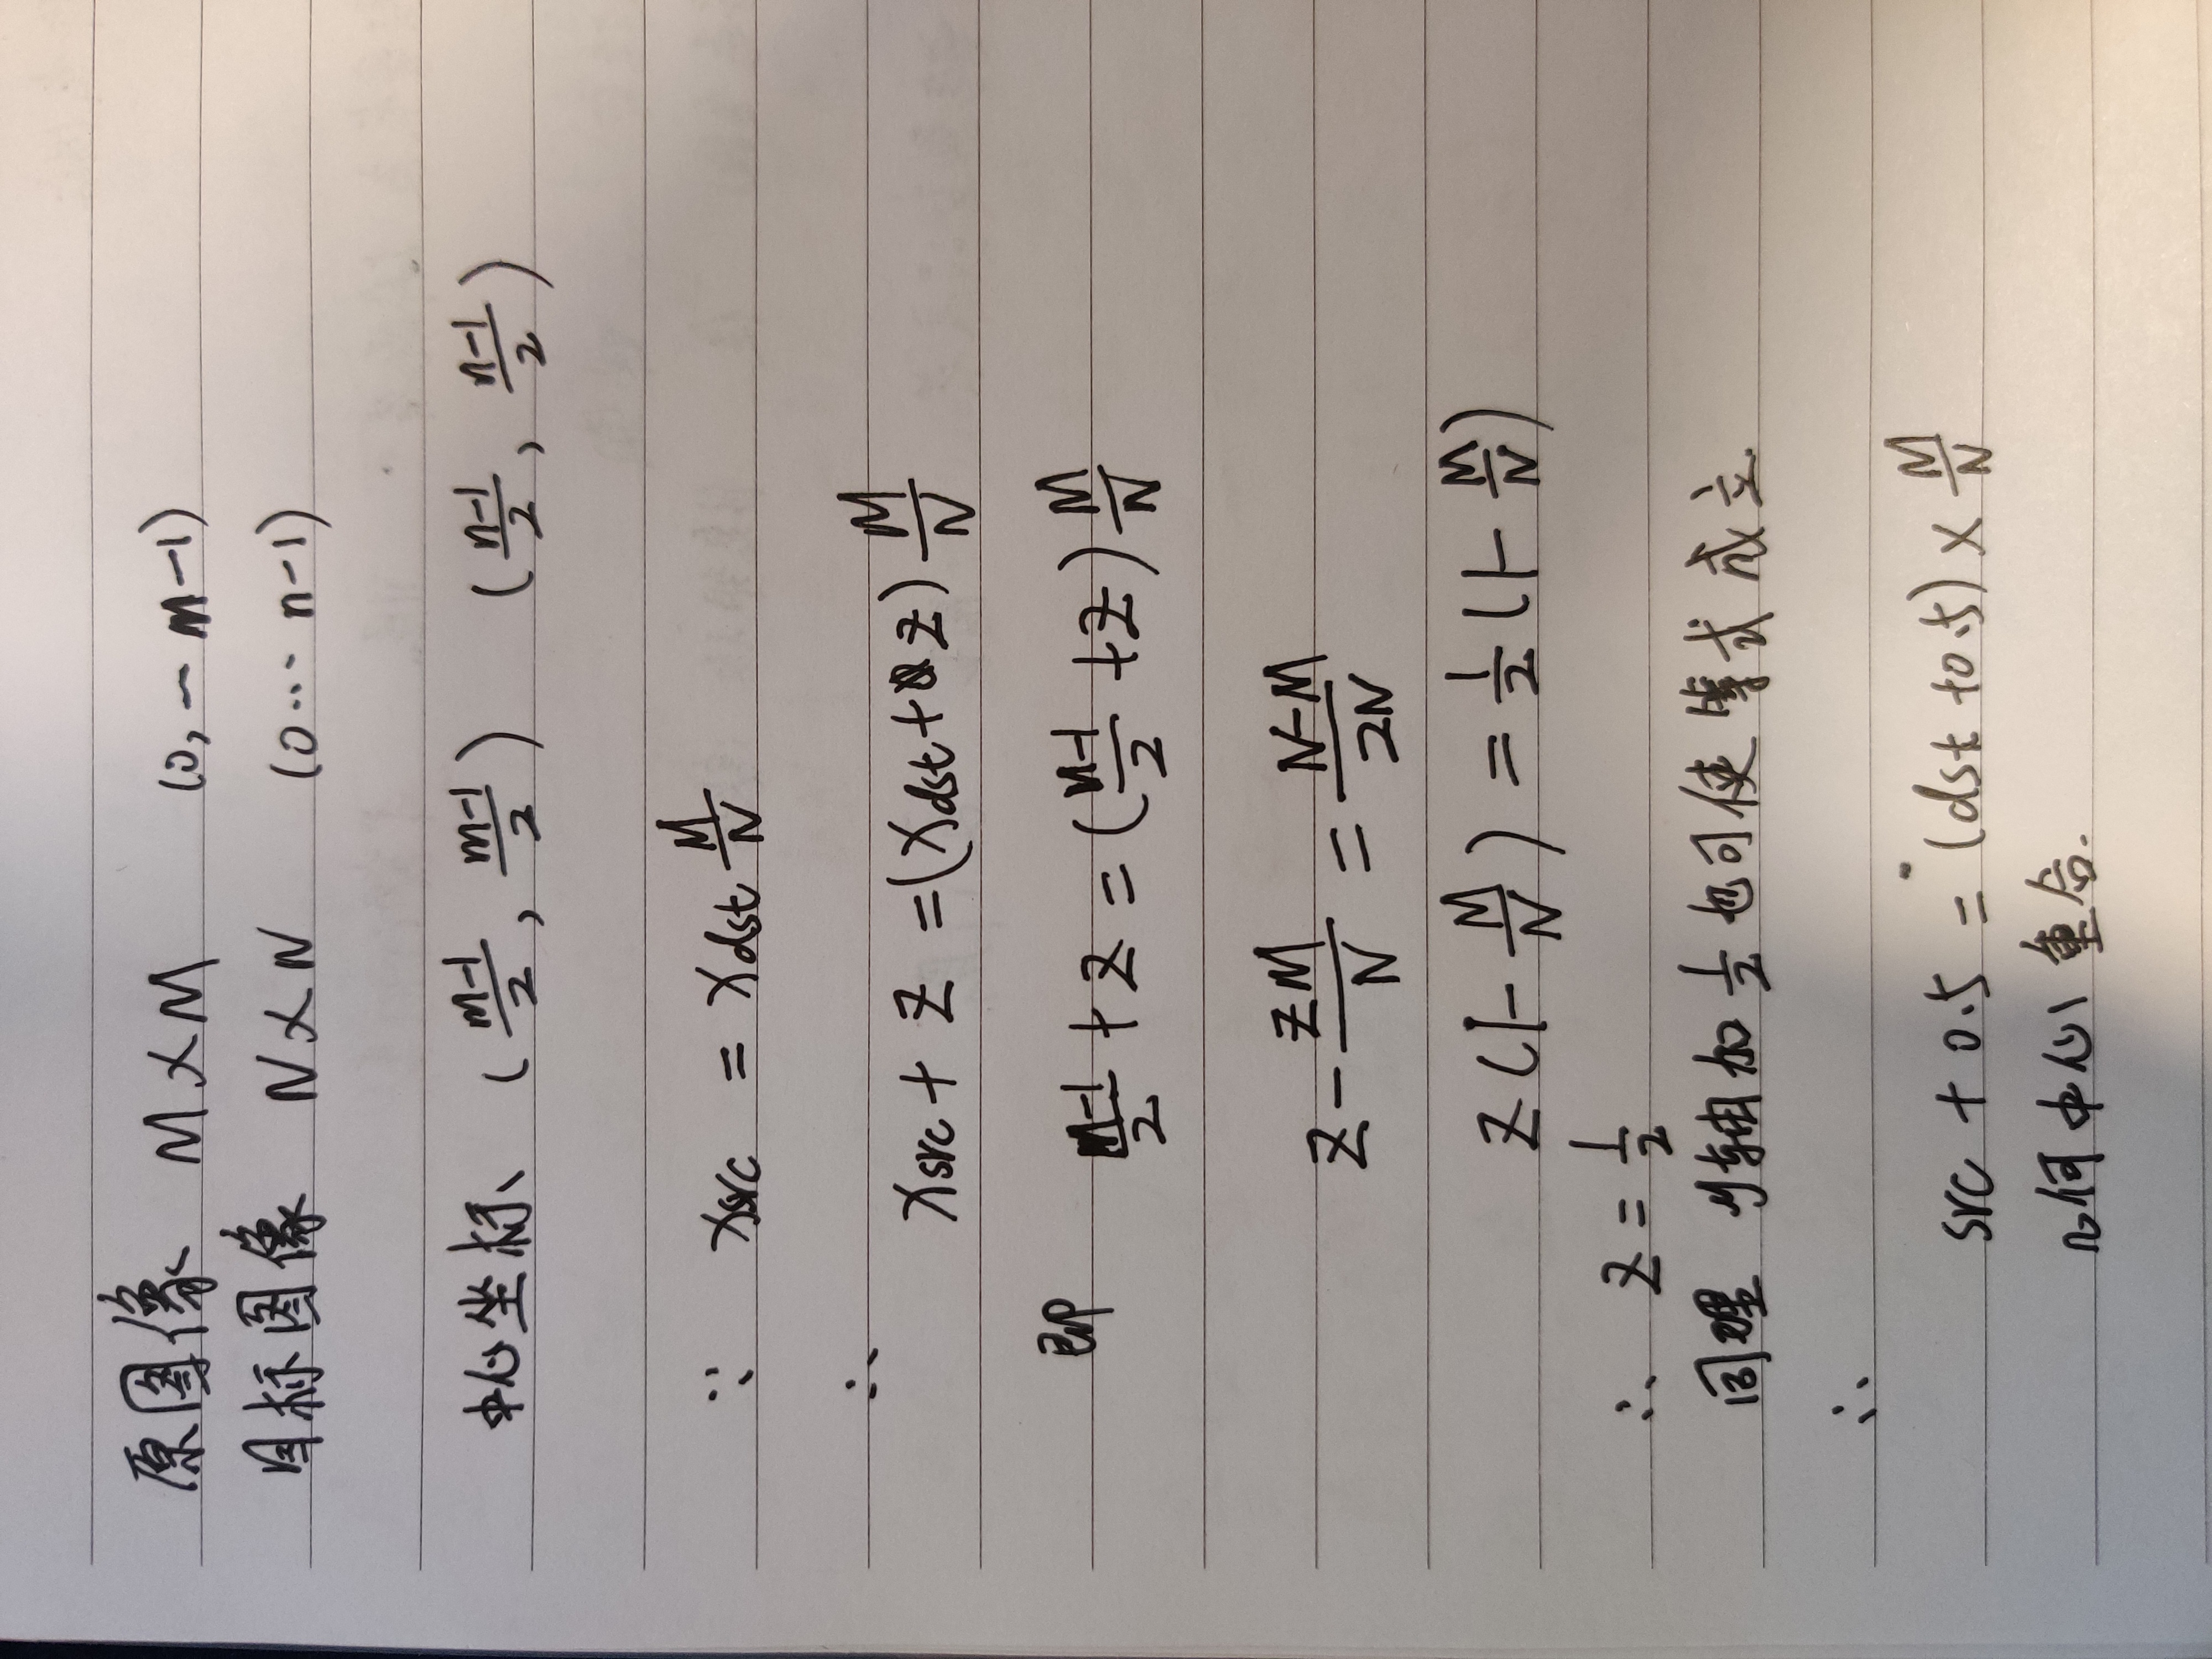 原图像 M×M (0, … m-1)
目标图像 N×N (0 … n-1)
中心坐标 (\frac{m-1}{2}, \frac{m-1}{2}) (\frac{n-1}{2}, \frac{n-1}{2})
∵ x_{src} = x_{dst} \frac{M}{N}
∴
x_{src} + z = (x_{dst} + z) \frac{M}{N}
即 \frac{m-1}{2} + z = (\frac{n-1}{2} + z) \frac{M}{N}
z - \frac{zM}{N} = \frac{N-M}{2N}
z (1 - \frac{M}{N}) = \frac{1}{2} (1 - \frac{M}{N})
∴ z = \frac{1}{2}
同理 y轴加 \frac{1}{2} 也可使等式成立
∴
src + 0.5 = (dst + 0.5) × \frac{M}{N}
几何中心重合.